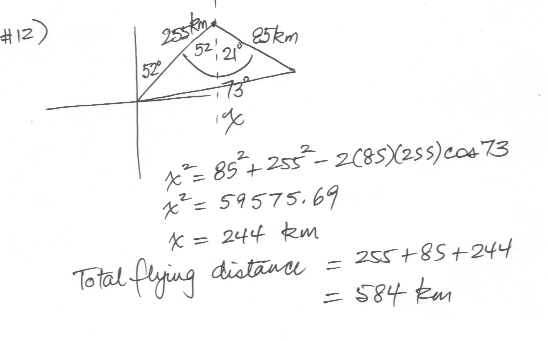 #12)
255km 85km
52° 52° 21°
73°
x
x² = 85² + 255² - 2(85)(255)cos73
x² = 59575.69
x = 244 km
Total flying distance = 255+85+244
= 584 km